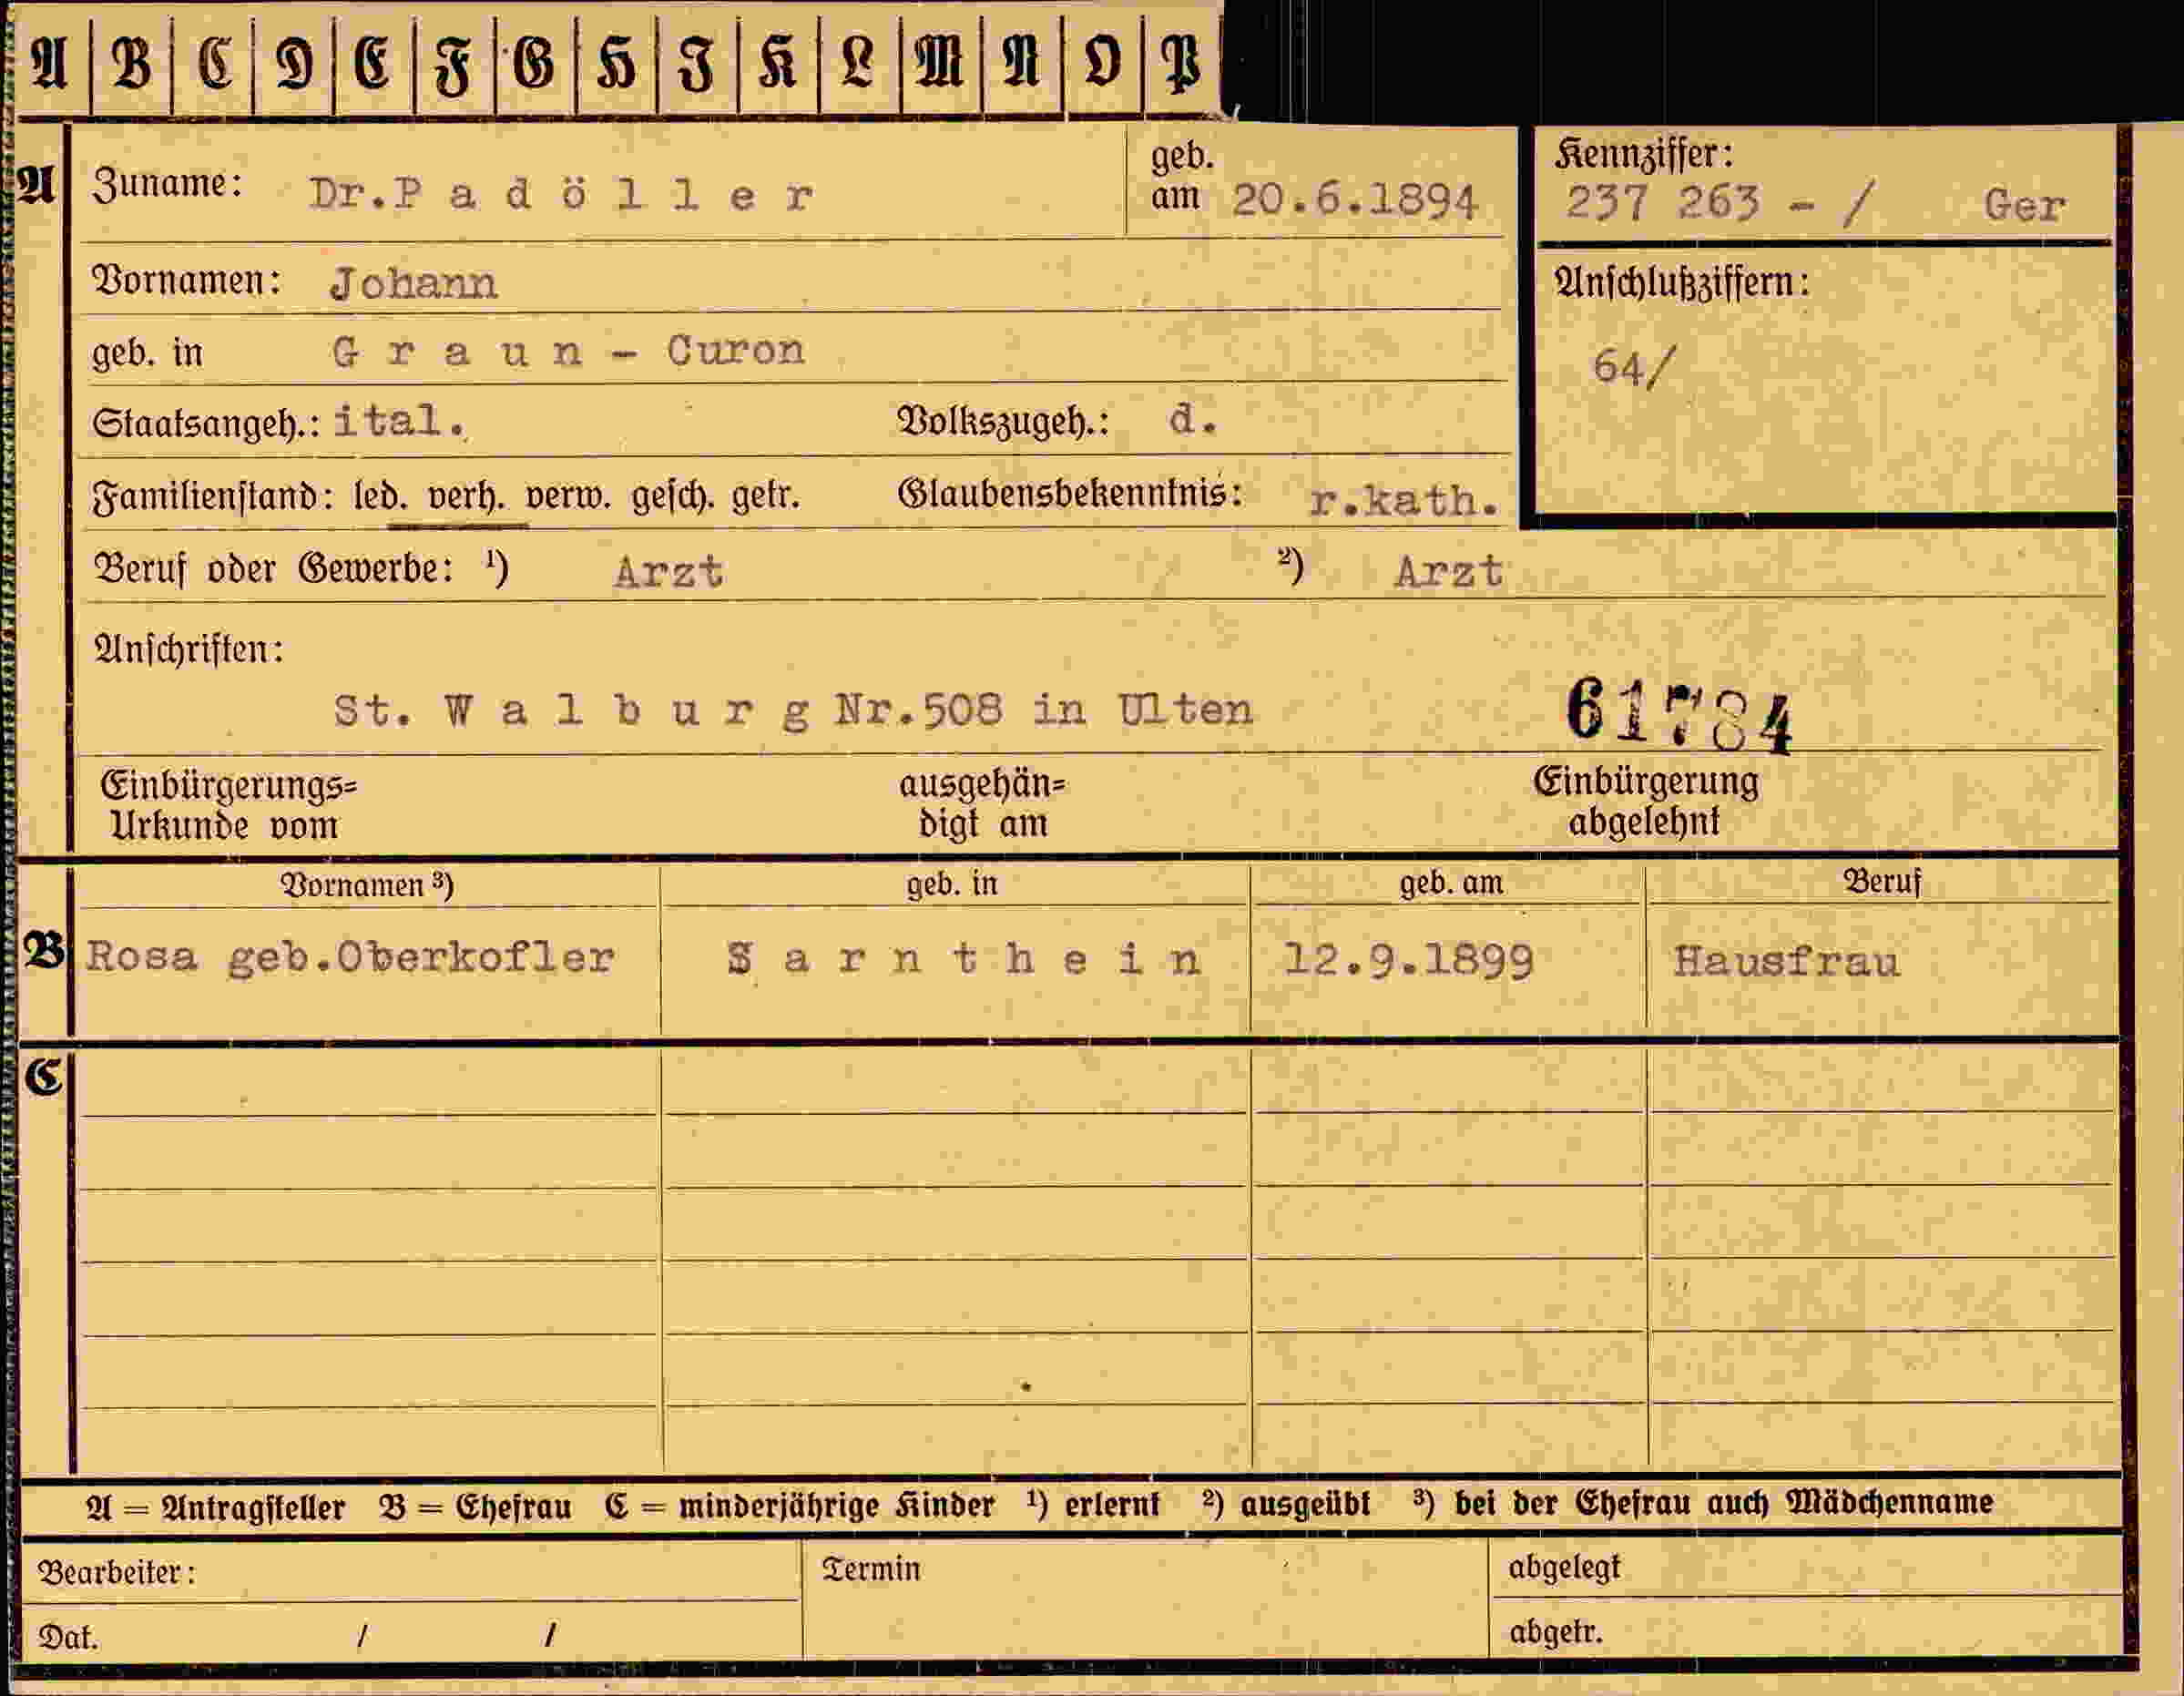 A B C D E F G H I K L M N O P
A Zuname: Dr.P a d ö l l e r geb. am 20.6.1894
Kennziffer:
237 263 - / Ger
Vornamen: Johann
Anschlußziffern:
64/
geb. in G r a u n - Curon
Staatsangeh.: ital. Volkszugeh.: d.
Familienstand: led. verh. verw. gesch. getr. Glaubensbekenntnis: r.kath.
Beruf oder Gewerbe: ¹) Arzt ²) Arzt
Anschriften:
St. W a l b u r g Nr.508 in Ulten 61784
Einbürgerungs= ausgehän= Einbürgerung
Urkunde vom digt am abgelehnt
Vornamen ³) geb. in geb. am Beruf
B Rosa geb.Oberkofler S a r n t h e i n 12.9.1899 Hausfrau
C
A = Antragsteller B = Ehefrau C = minderjährige Kinder ¹) erlernt ²) ausgeübt ³) bei der Ehefrau auch Mädchenname
Bearbeiter: Termin abgelegt
Dat. / / abgetr.